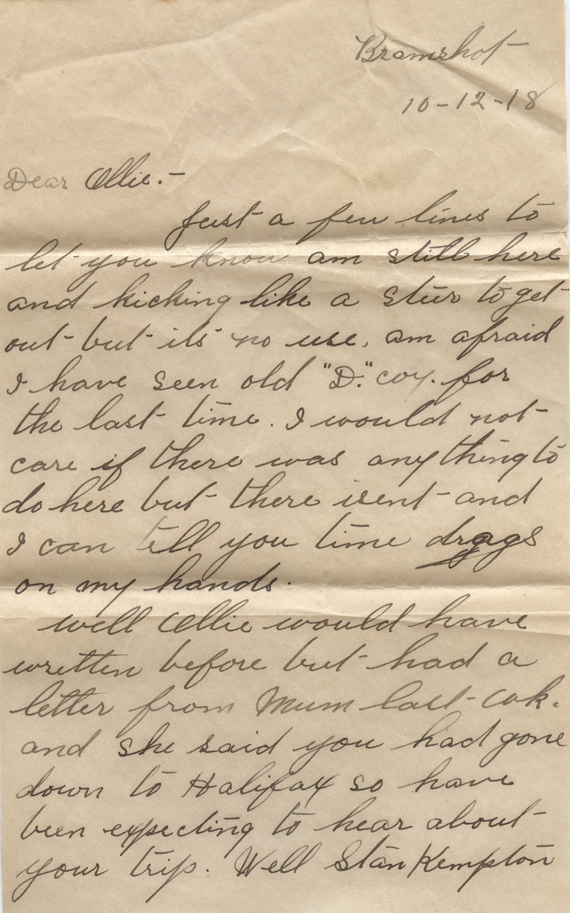 Bramshot
10-12-18
Dear Ollie.-
Just a few lines to
let you know am still here
and kicking like a steer to get
out but its no use, am afraid
I have seen old "D." coy. for
the last time. I would not
care if there was anything to
do here but there isent and
I can tell you time drags
on my hands.
well Ollie would have
written before but had a
letter from Mum last wk.
and she said you had gone
down to Halifax so have
been expecting to hear about
your trip. Well Stan Kempton